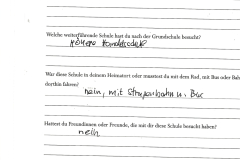 Welche weiterführende Schule hast du nach der Grundschule besucht?
Höhere Handelsschule
War diese Schule in deinem Heimatort oder musstest du mit dem Rad, mit Bus oder Bahn
dorthin fahren?
nein, mit Straßenbahn u. Bus
Hattest du Freundinnen oder Freunde, die mit dir diese Schule besucht haben?
nein